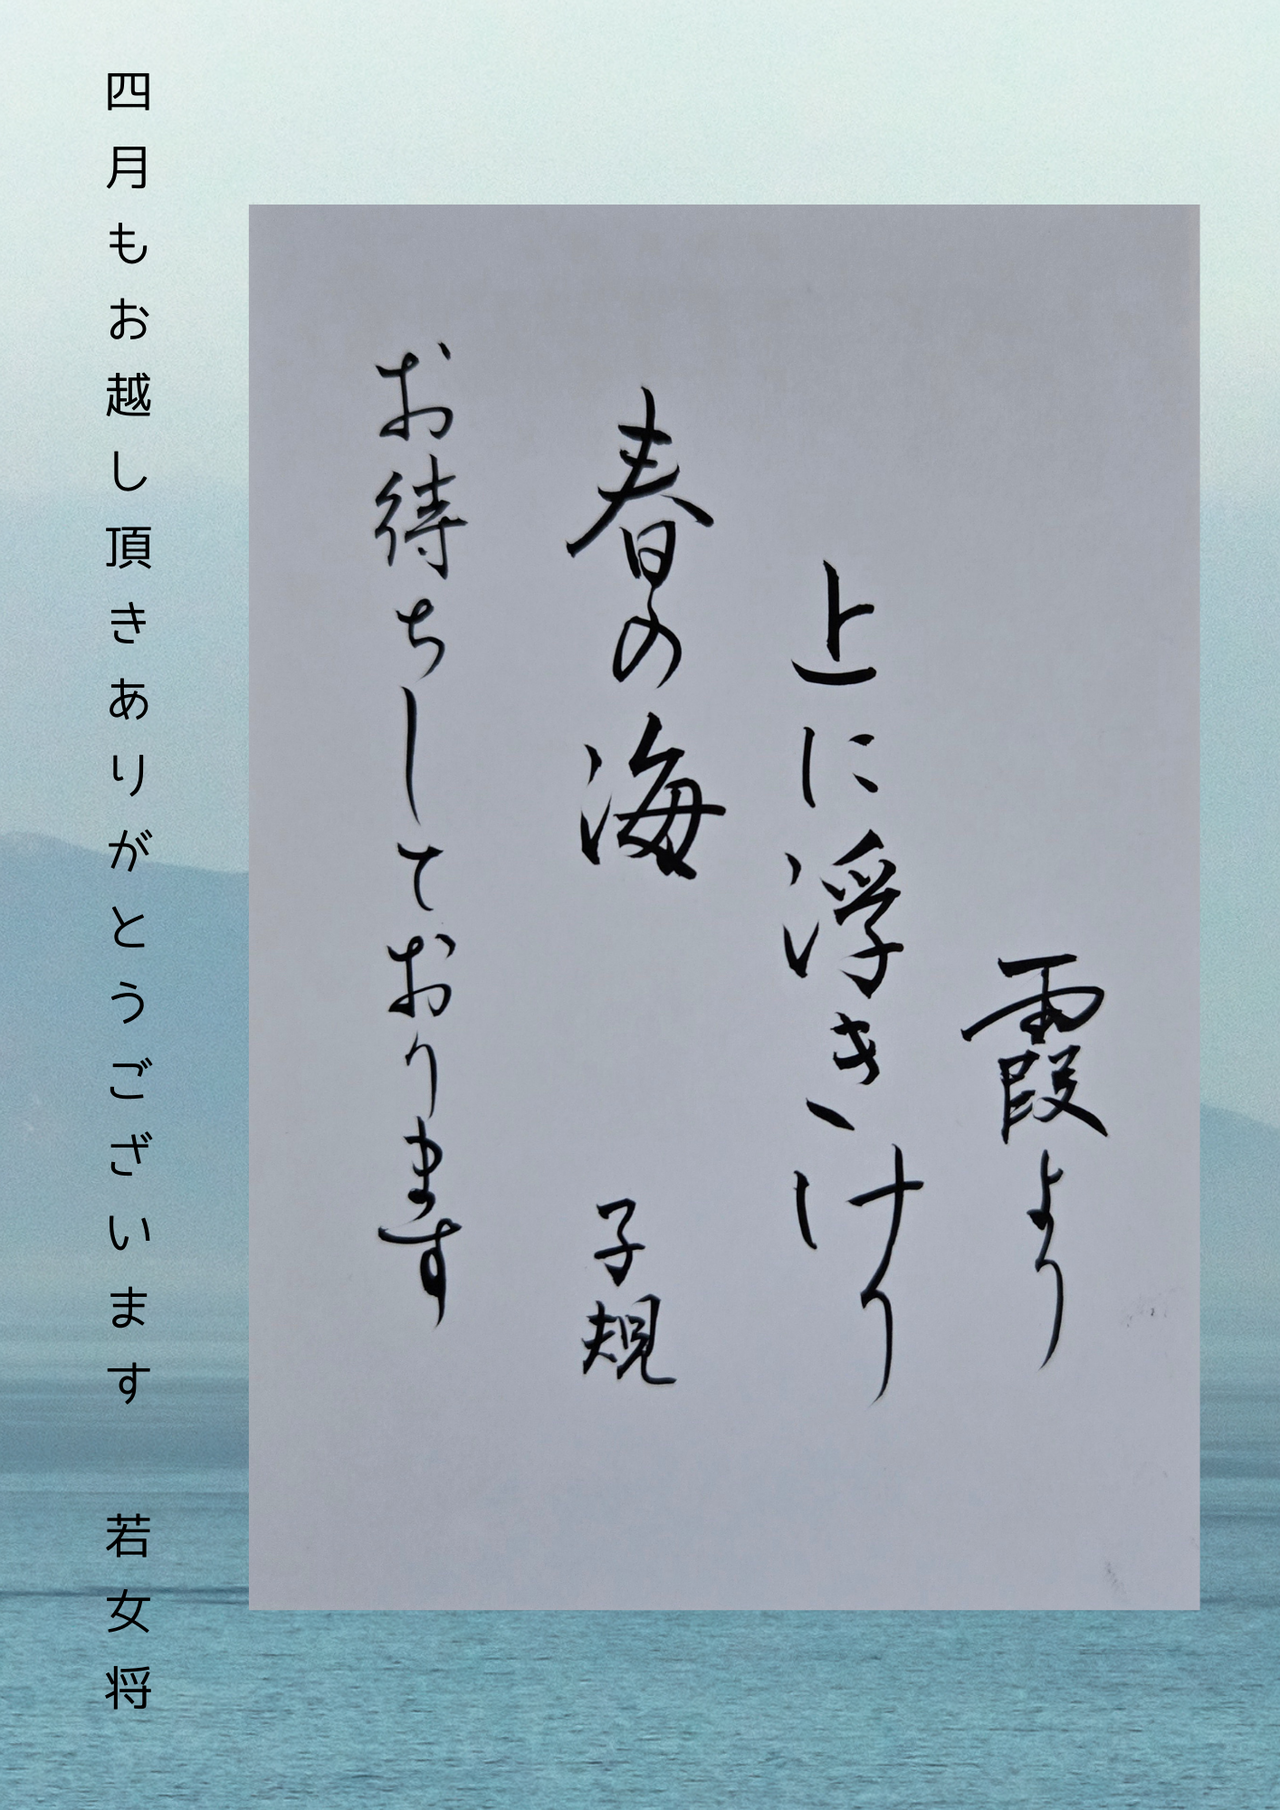 霞より
上に浮きけり
春の海
子規
お待ちしております
四月もお越し頂きありがとうございます　若女将